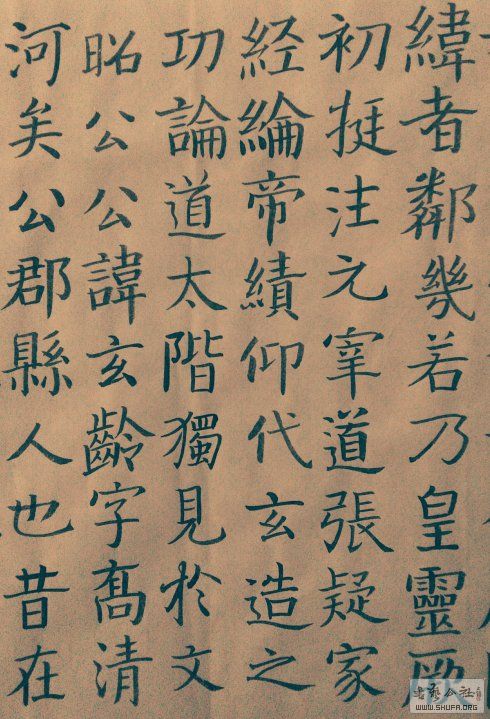 緯者鄰幾若乃皇靈厥
初挺注元宰道張疑家
経綸帝績仰代玄造之
功論道太階獨見於文
昭公公諱玄齡字喬清
河矣公郡縣人也昔在
書藝公社
WWW.SHUFA.ORG